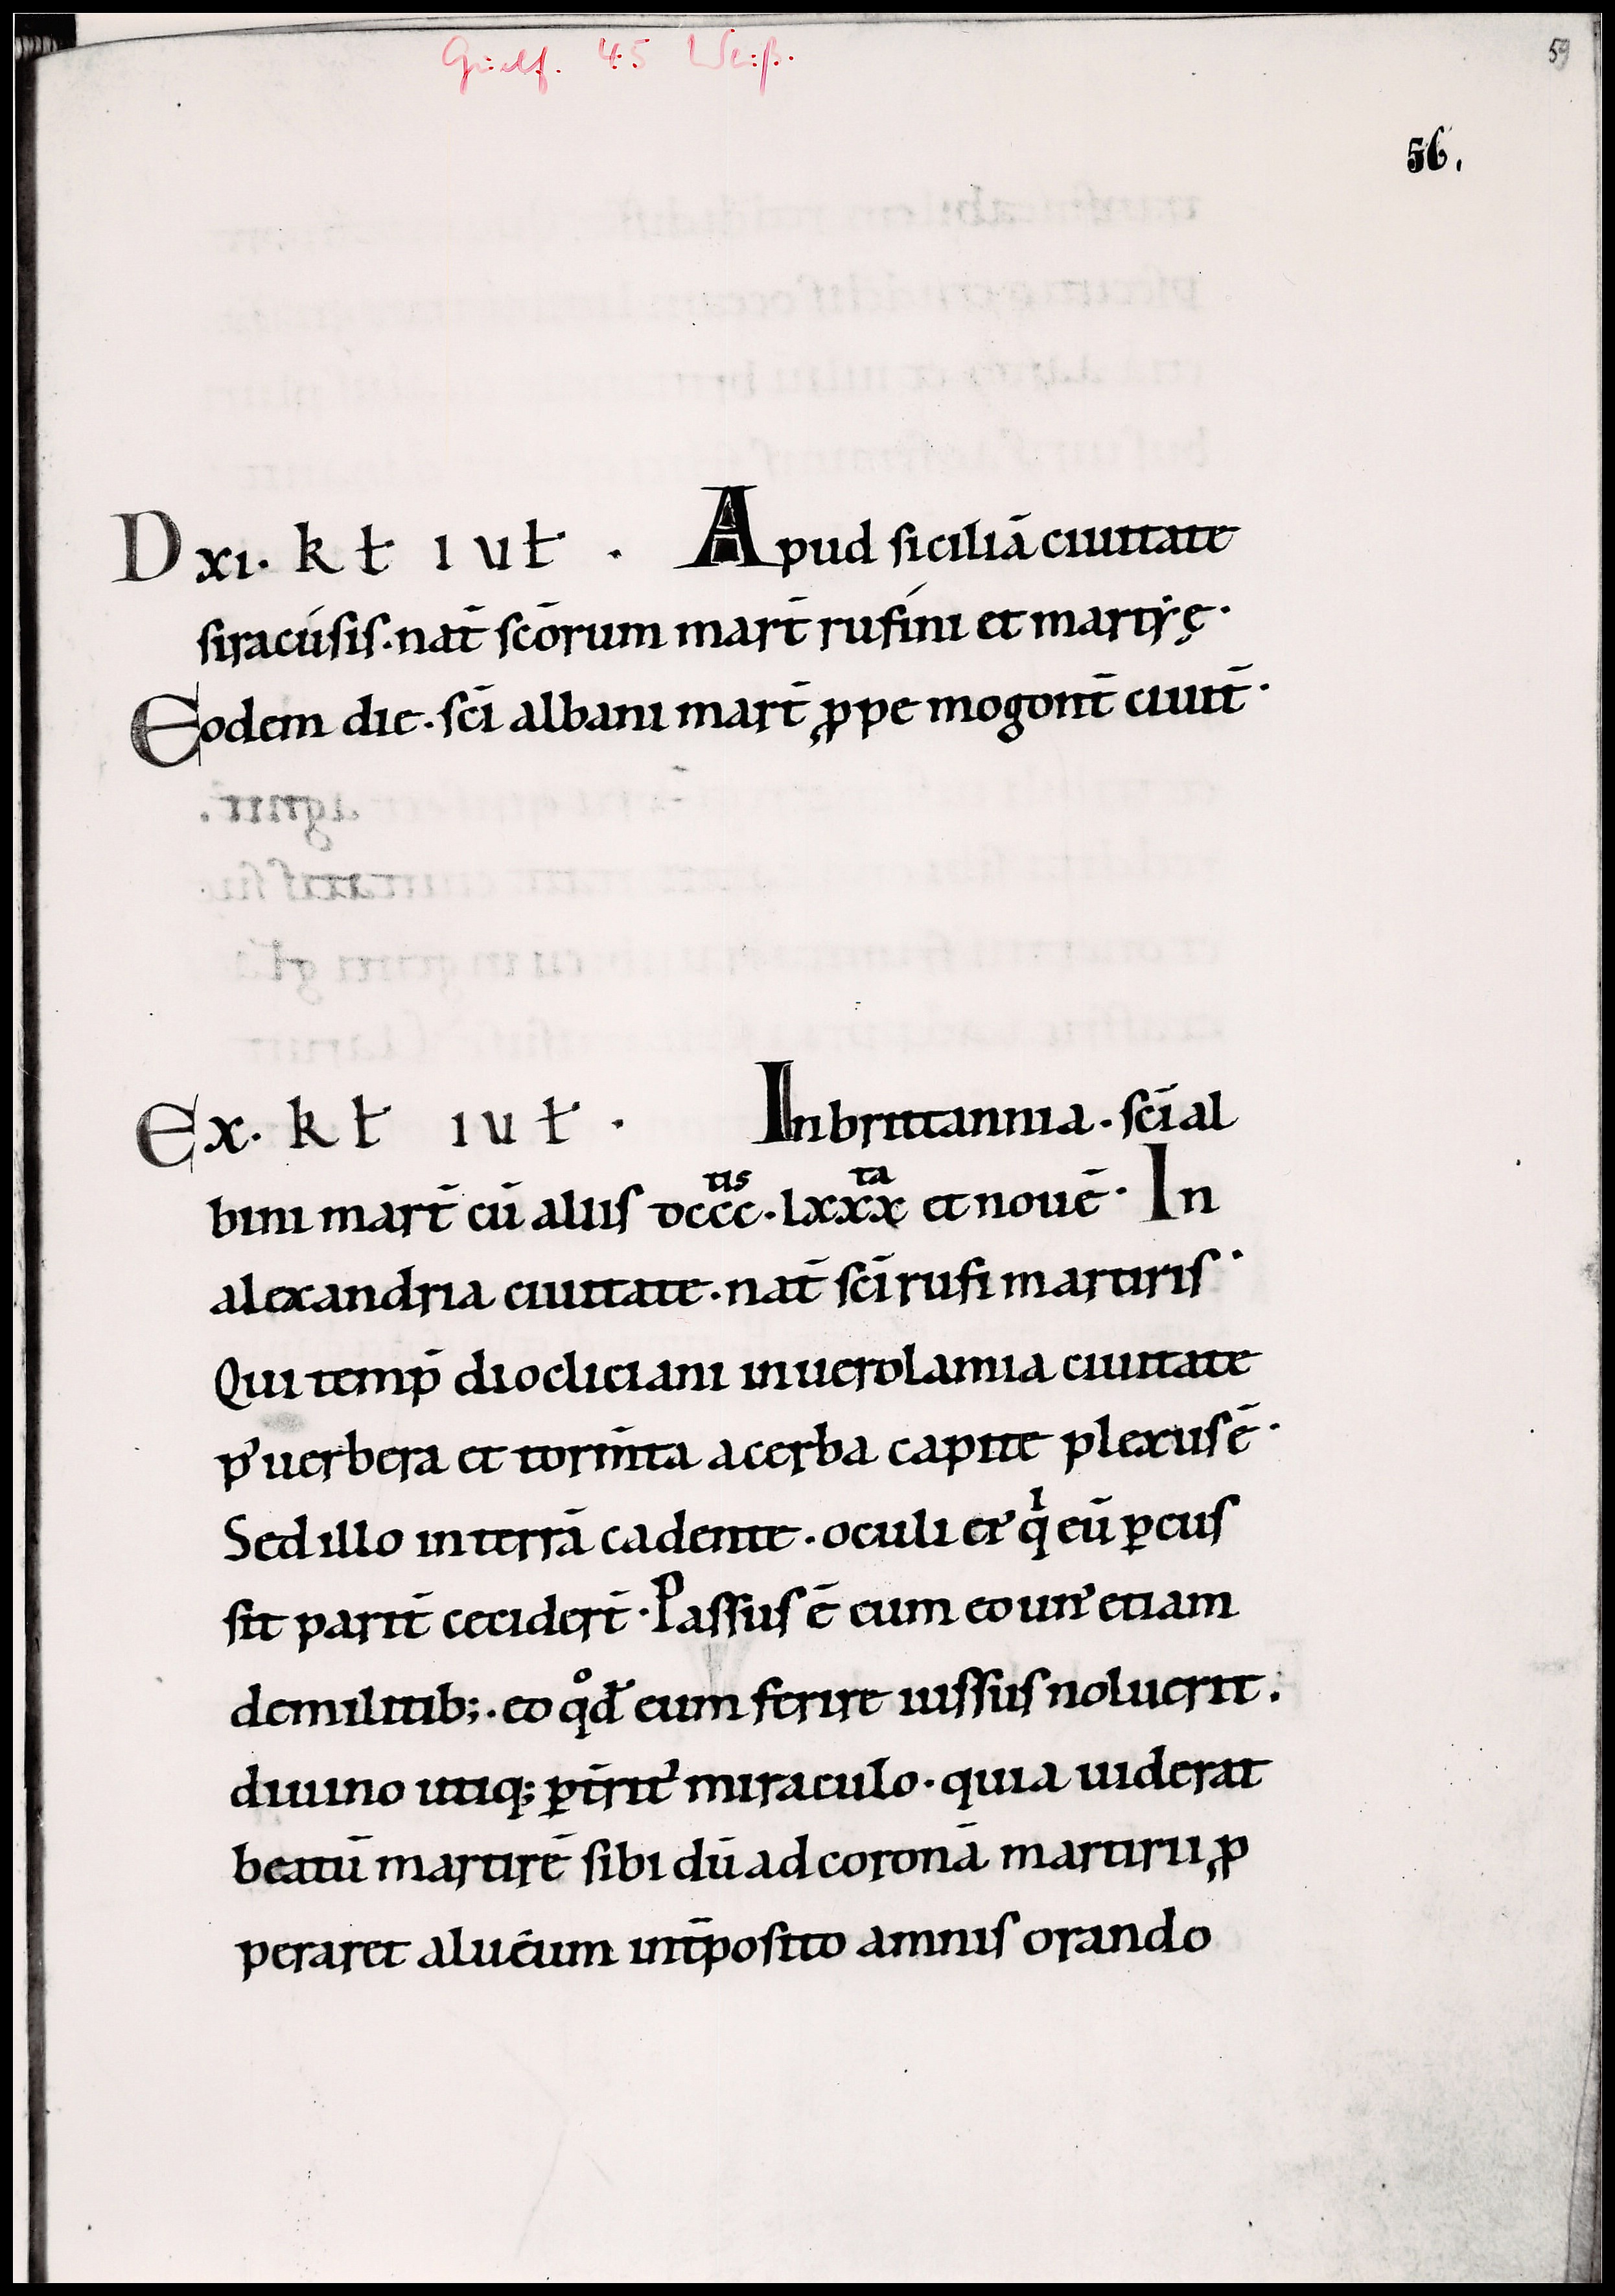 Guelf. 45 Weiß.
59
56.
D xi. kł iuł . Apud siciliā ciuitate
siracúsis. nat̄ sc̄orum mart̄ rufíni et martẏ́ę.
Eodem die. sc̄i albani mart̄ ꝓpe mogont̄ ciuit̄.
E x. kł iuł . In brittannia. sc̄i al
bini mart̄ cū aliis dcccͭ ͥ ˢ. lxxx ͭ ͣ et nouē. In
alexandria ciuitate. nat̄ sc̄i rufi martiris.
Qui temp̄ diocliciani in uerolamia ciuitate
p᾽ uerbera et torm̄ta acerba capite plexus ē.
Sed illo in terrā cadente. oculi ei᾽ qͥ eū ꝑcus
sit parit̄ cecider̄t. Passus ē cum eo un᾽ etiam
de militib;. eo qͦđ eum ferire iussus noluerit.
diuino utiq; ꝑt̄rit᾽ miraculo. quia uiderat
beatū martirē sibi dū ad coronā martirii ꝓ
peraret alueum int̄positio amnis orando